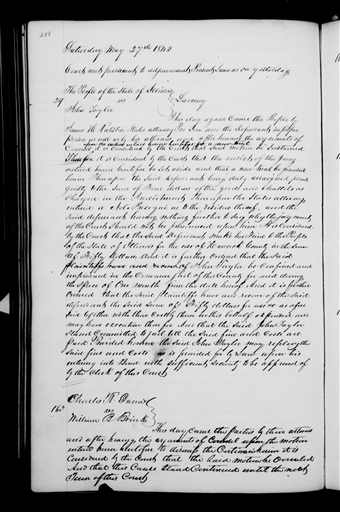 Saturday May 27th 1843
Court met pursuant to adjournment Present same as on yesterday
The People of the State of Illinois
29 vs Larceny
John Taylor
This day again Came the People by
James H Ralston States attorney Pro Tem and the Defendant in proper
person as well as by his attorney and after hearing the arguments of
Counsel it is Considered by the Court that Said motion be Sustained
Therefore it is Considered by the Court that the verdict of the jury
entered herein heretofore be set aside and that a new trial be granted
herein Thereupon the Said defendant being duly arraigned plead
guilty to the Sum of Five dollars of the goods and Chattels as
Charged in the Indictment Thereupon the States attorney
entered a Nole Prosequi as to the residue thereof, and the
Said defendant having nothing further to Say why the judgment
of the Court Should not be pronounced upon him It is Considered
by the Court that the Said Defendant make his fine to the People
of the State of Illinois for the use of Hancock County in the Sum
of Fifty dollars, And it is further ordered that the Said
John Taylor be Confined and
imprisoned in the Common Jail of this County for and during
the Space of One month from the date hereof, And it is further
ordered that the Said Plaintiffs have and recover of the Said
defendant the Said Sum of Fifty dollars for use as afore
Said together with their Costs by them in this behalf expended and
may have execution therefor And that the Said John Taylor
Stand Committed to jail till the Said fine and Costs are
Paid, Provided however the Said John Taylor may replevy the
Said fine and Costs as is provided for by Law upon his
entering into Bond with Sufficient Security to be approved of
by the Clerk of this Court
Charles R
162 vs
William B
This day Came the parties by their attorneys
and after hearing the arguments of Counsel upon the motion
entered herein heretofore to dismiss the Certiorari herein it is
Considered by the Court that the Said motion be overruled
And that this Cause Stand Continued until the next
Term of this Court